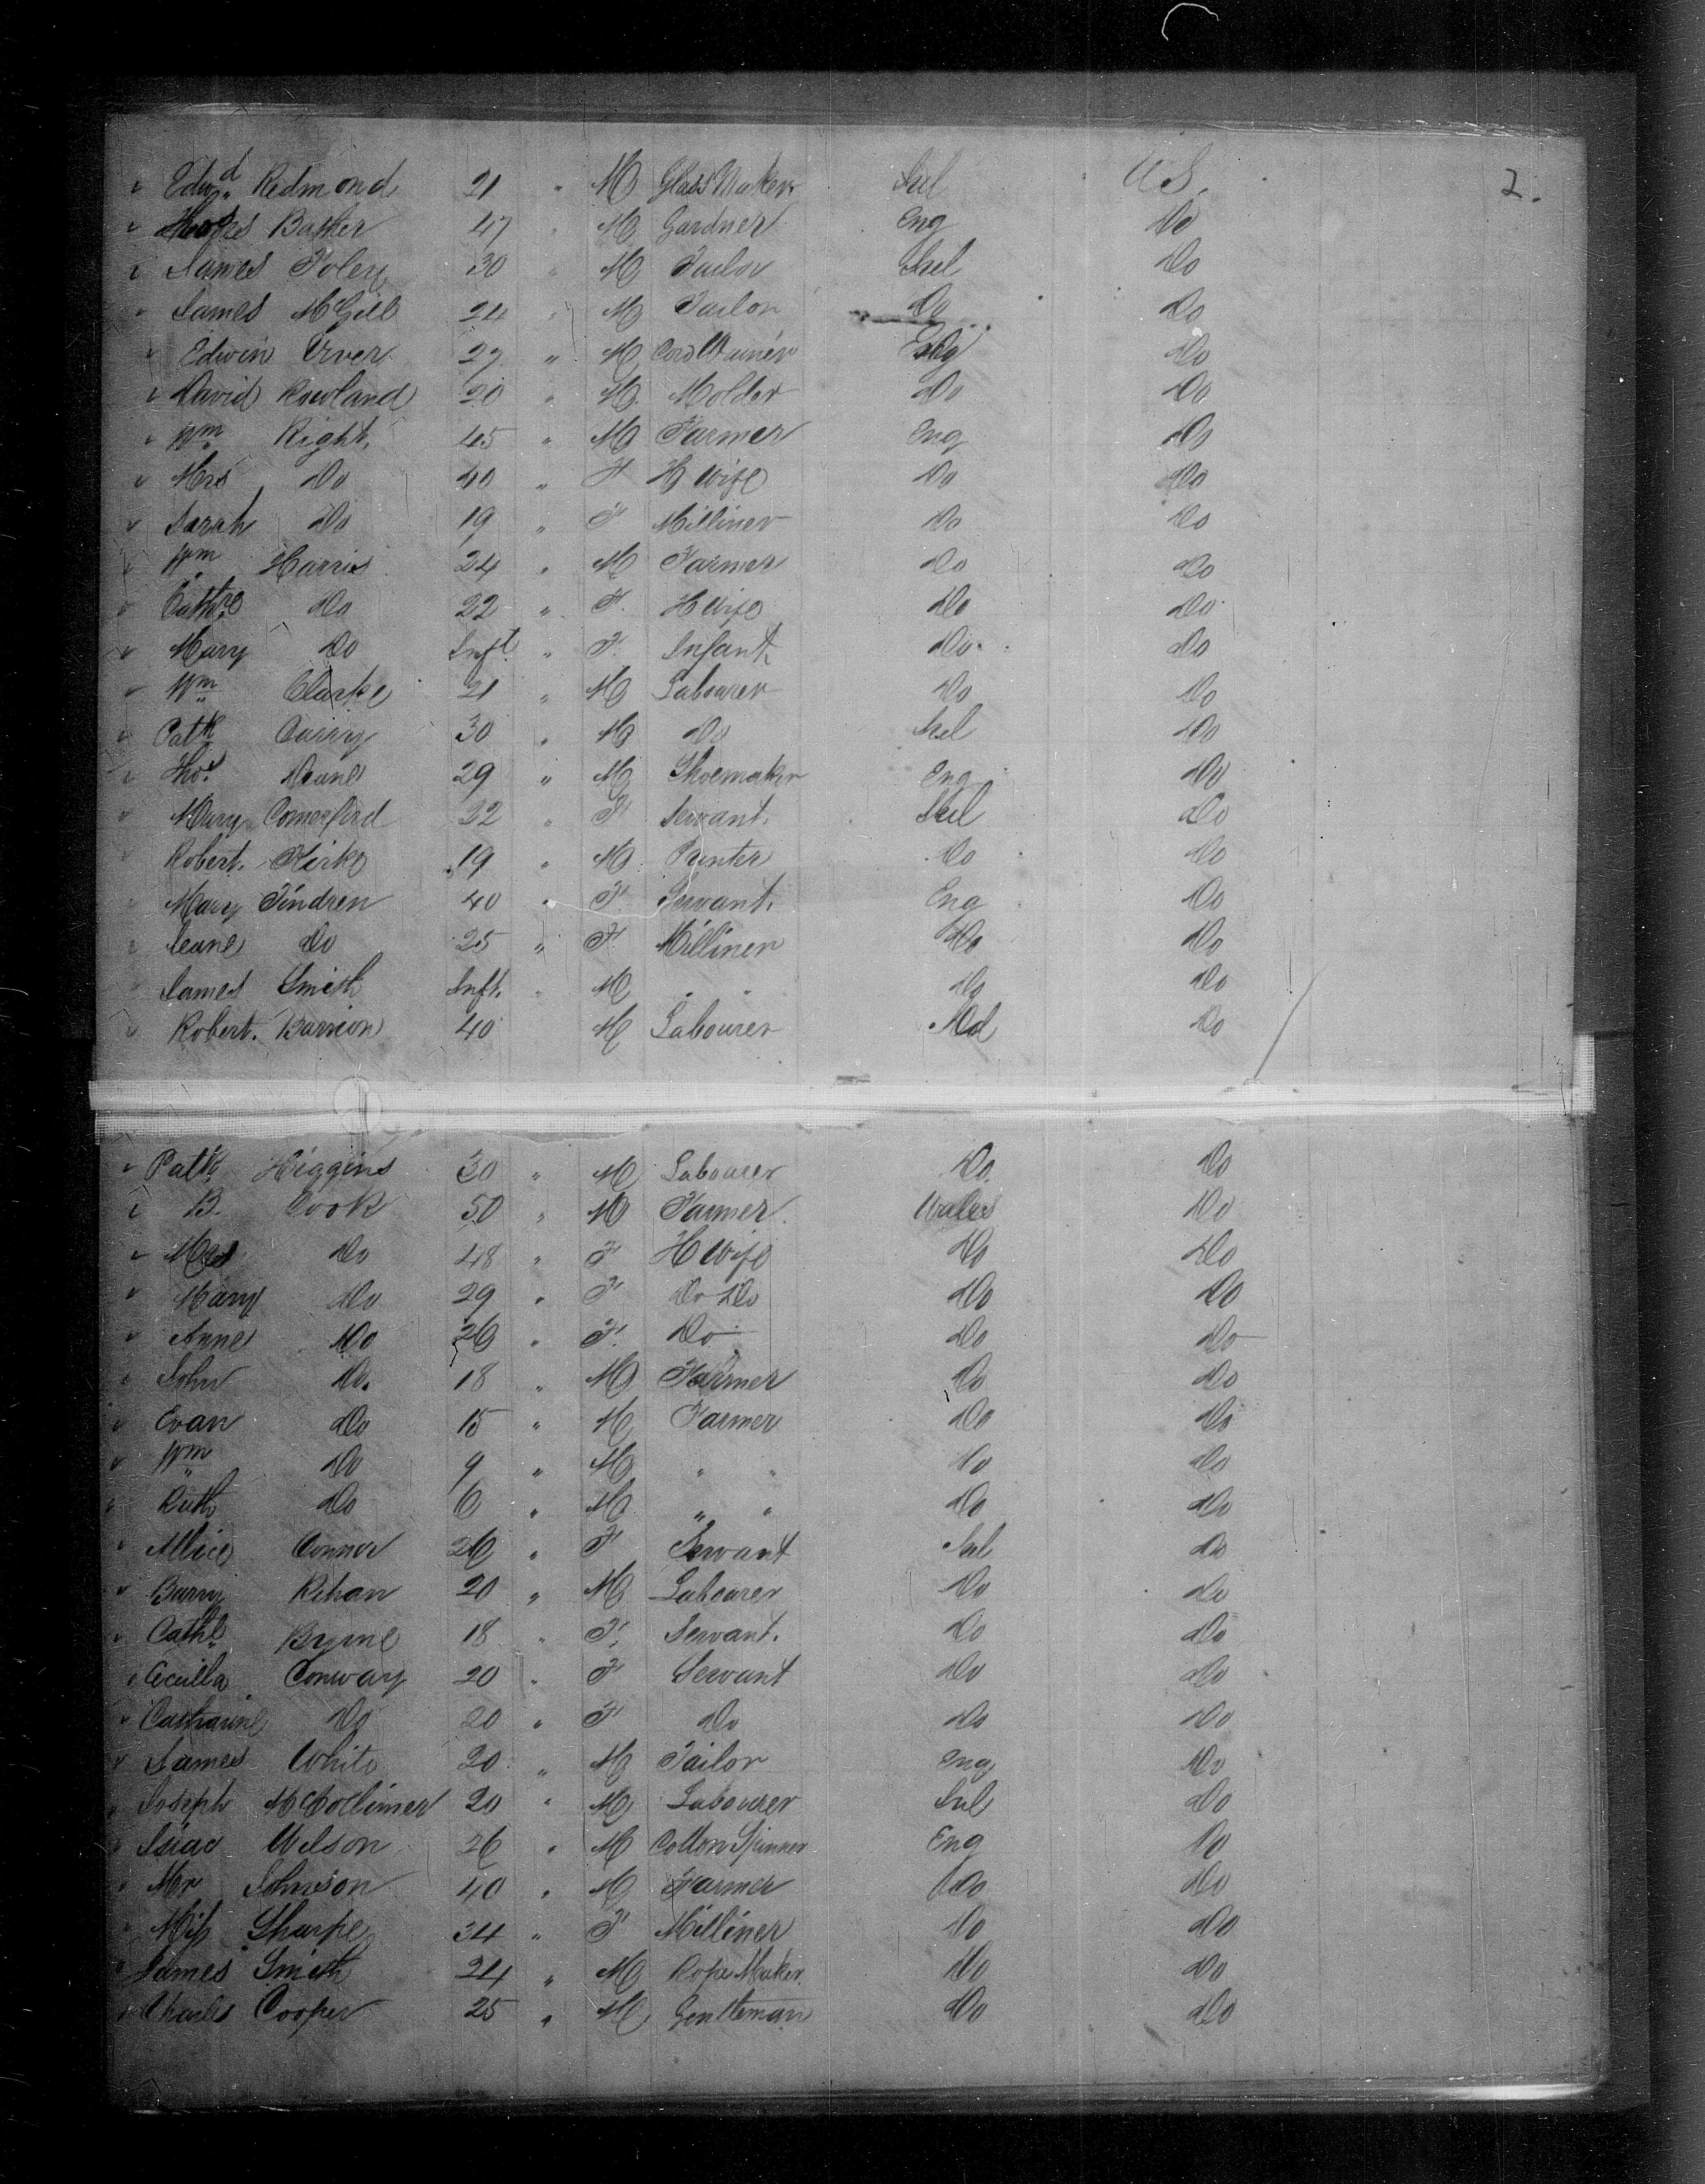 Edwd Redmond 21 " M Glass Maker Irel U.S. 2.
Barker 47 " M Gardner Eng Do
James Foley 30 " M Tailor Irel Do
James McGill 24 " M Tailor Do Do
Edwin 27 " M Cord Wainer Eng Do
David Rowland 20 " M Molder Do Do
Wm Right 45 " M Farmer Eng Do
Mrs Do 40 " F H Wife Do Do
Sarah Do 19 " F Milliner Do Do
Wm Harris 24 " M Farmer Do Do
Cathre Do 22 " F. H Wife Do Do
Mary Do Inft " F. Infant Do Do
Wm Clarke 21 " M Labourer Do Do
Patk Curry 30 " M Do Irel Do
Thos Deane 29 " M Shoemaker Eng Do
Mary Comerford 22 " F Servant. Irel Do
Robert. Kirke 19 " M Do Do
Mary Tindren 40 " F. Servant. Eng Do
Jeane Do 25 " F. Milliner Do Do
James Smith Inft. " M " " Do Do
Robert. 40 M Labourer Do
Patk Higgins 30 " M Labourer Do. Do
B. Cook 50 " M Farmer Wales Do
Mrs Do 48 " F H Wife Do Do
Mary Do 29 " F Do Do Do Do
Anne Do 26 " F. Do Do Do
John Do. 18 " M Farmer Do Do
Evan Do 15 " M Farmer Do Do
Wm Do 9 " M " " Do Do
Ruth Do 6 " M " " Do Do
Allice Connor 26 " F Servant Irel Do
Barny Rehan 20 " M Labourer Do Do
Cathe Byrne 18 " F. Servant. Do Do
Cecilla Conway 20 " F Servant Do Do
Catharine Do 20 " F Do Do Do
James White 20 " M Tailor Eng Do
Joseph McCollimer 20 " M Labourer Irel Do
Isiac Wilson 26 " M Cotton Spinner Eng Do
Mr Johnson 40 " M Farmer Do Do
Miss Sharpe 34 " F Milliner Do Do
James Smith 24 " M Rope Maker. Do Do
Charles Cooper 25 " M Gentleman Do Do